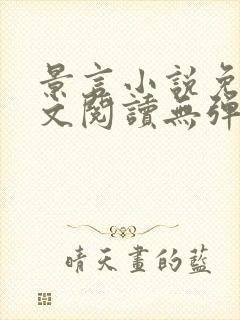 景言小說免
文閱讀無彈
晴天畫的藍